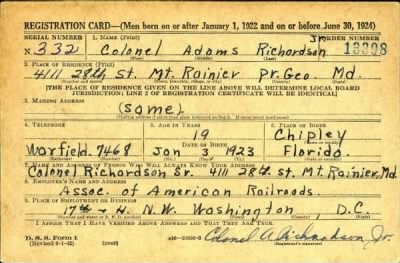 REGISTRATION CARD—(Men born on or after January 1, 1922 and on or before June 30, 1924)
SERIAL NUMBER 1. NAME (Print) ORDER NUMBER
N. 332 Colonel Adams Richardson Jr. 13398
(First) (Middle) (Last)
2. PLACE OF RESIDENCE (Print)
4111 28th St. Mt. Rainier Pr. Geo. Md.
[THE PLACE OF RESIDENCE GIVEN ON THE LINE ABOVE WILL DETERMINE LOCAL BOARD
JURISDICTION; LINE 2 OF REGISTRATION CERTIFICATE WILL BE IDENTICAL]
3. MAILING ADDRESS
(same)
4. TELEPHONE 5. AGE IN YEARS 6. PLACE OF BIRTH
19 Chipley
DATE OF BIRTH
Warfield 7468 Jan 3 1923 Florida
7. NAME AND ADDRESS OF PERSON WHO WILL ALWAYS KNOW YOUR ADDRESS
Colonel Richardson Sr. 4111 28th st. Mt Rainier, Md
8. EMPLOYER'S NAME AND ADDRESS
Assoc. of American Railroads.
9. PLACE OF EMPLOYMENT OR BUSINESS
17th - H. N.W. Washington, D.C.
I AFFIRM THAT I HAVE VERIFIED ABOVE ANSWERS AND THAT THEY ARE TRUE.
D. S. S. Form 1
(Revised 6-1-42) (over) Colonel A. Richardson Jr.
(Registrant's signature)